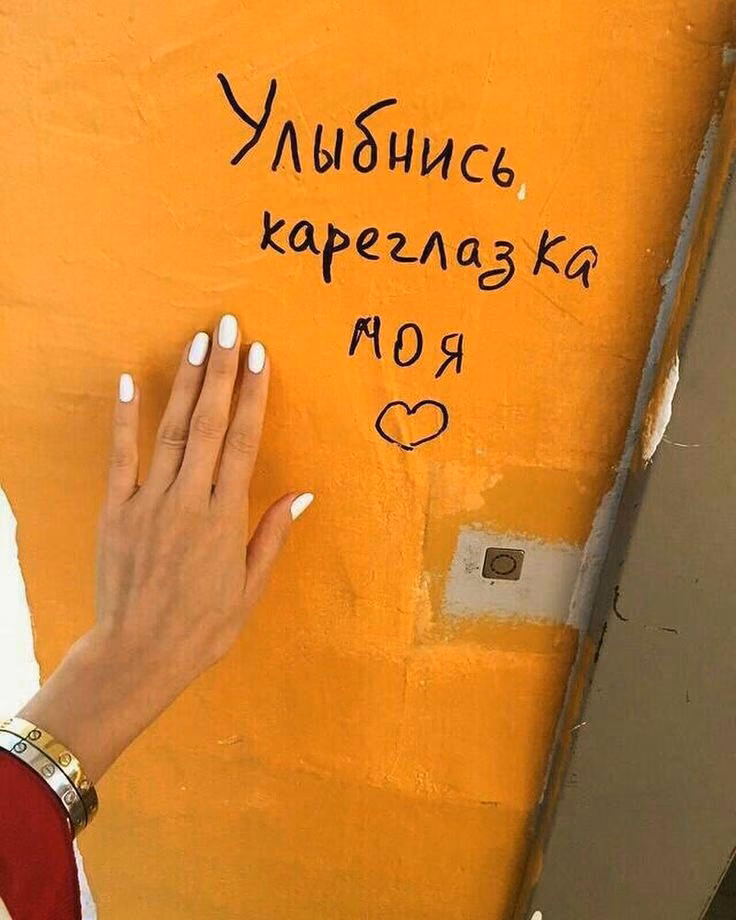 Улыбнись,
кареглазка
моя